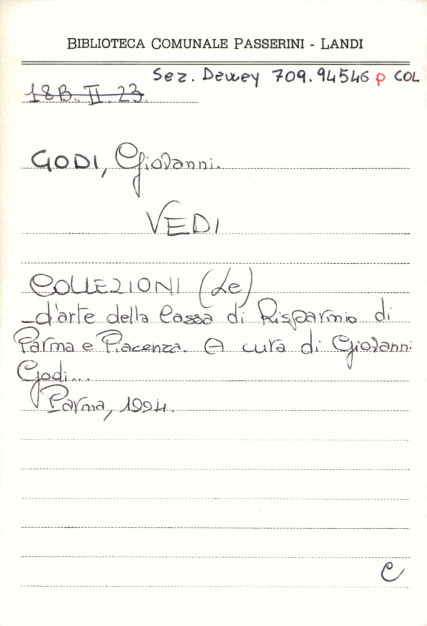 BIBLIOTECA COMUNALE PASSERINI - LANDI
Sez. Dewey 709.94546 p COL
18B. II. 23.
GODI, Giovanni.
VEDI
COLLEZIONI (Le)
_d'arte della Cassa di Risparmio di
Parma e Piacenza. A cura di Giovanni
Godi...
Parma, 1994.
C